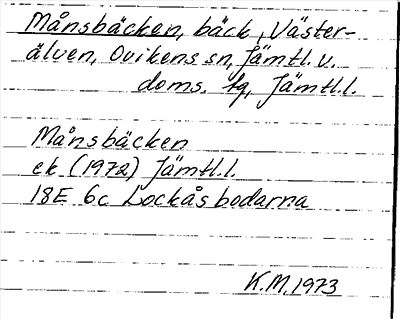 Månsbäcken, bäck, Väster-
älven, Ovikens sn, Jämtl. v.
doms. fg, Jämtl.l.
Månsbäcken
ek (1972) Jämtl.l.
18E 6c Lockåsbodarna
K.M. 1973